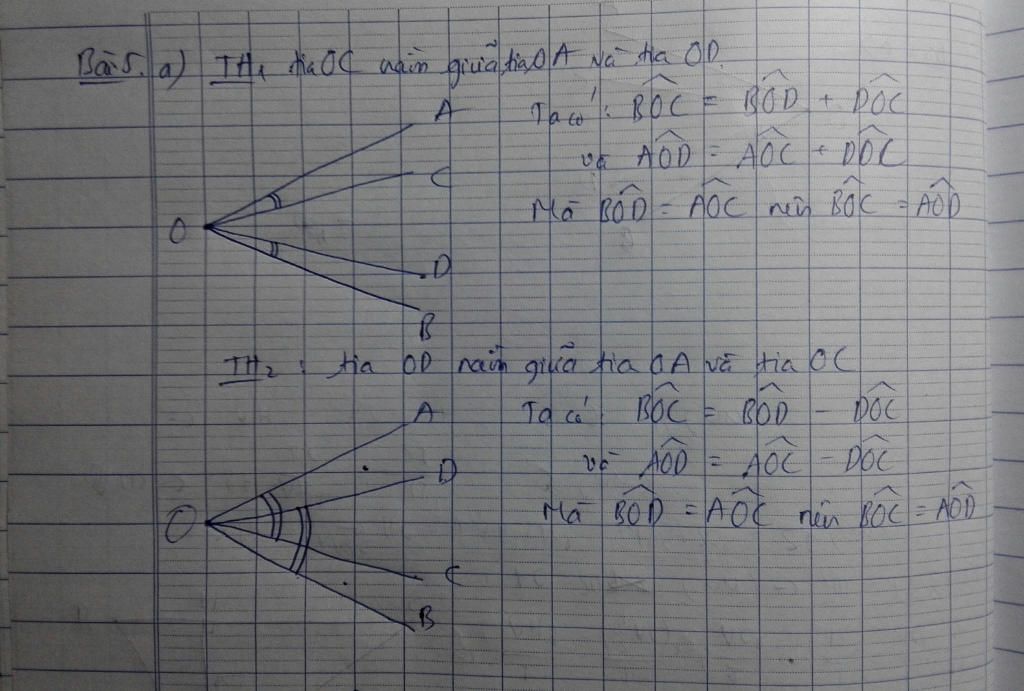 Bài 5. a) TH₁ tia OC nằm giữa tia OA và tia OD.
A
C
O
D
B
Ta có: BÔC = BÔD + DÔC
và AÔD = AÔC + DÔC
Mà BÔD = AÔC nên BÔC = AÔD
TH₂: tia OD nằm giữa tia OA và tia OC
A
D
O
C
B
Ta có BÔC = BÔD - DÔC
và AÔD = AÔC - DÔC
Mà BÔD = AÔC nên BÔC = AÔD